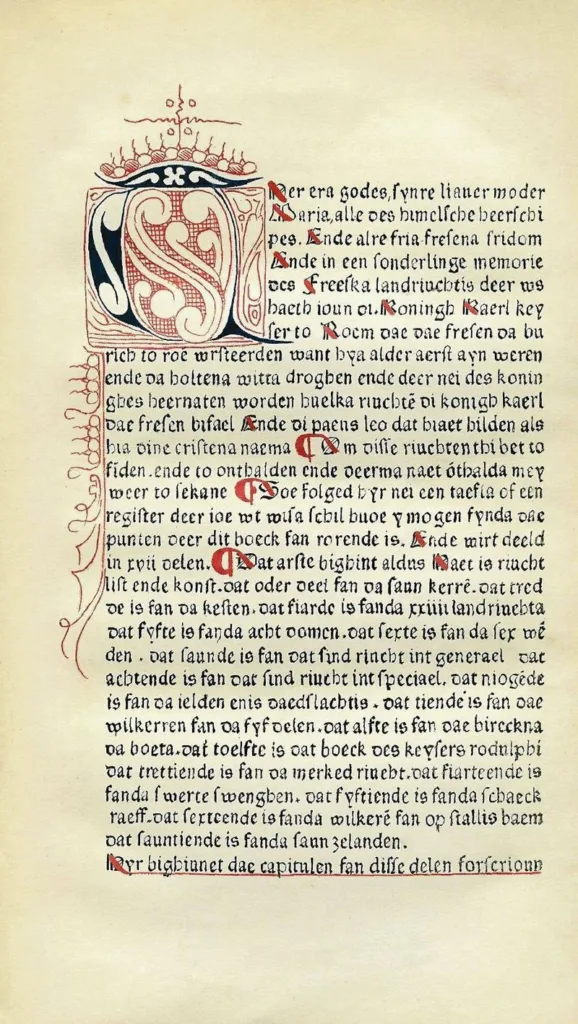 Toer era godes, synre liauer moder
Maria, alle des himelsche heerschi
pes. Ende alre fria fresena fridom
Ende in een sonderlinge memorie
des Freeska landriuchtis deer ws
haeth ioun di. Koningh Kaerl key
ser to Roem dae dae fresen da bu
rich to roē wrsteerden want hya alder aerst ayn weren
ende da holtena witta droghen ende deer nei des konin
ghes heernaten worden huelka riuchtē di konigh kaerl
dae fresen bifael Ende di paeus leo dat hiaet hilden als
hia dine cristena naema ¶ Om disse riuchten thi bet to
fiden. ende to onthalden ende deerma naet ōthalda mey
weer to sekane ¶ Soe folged hyr nei een taefla of een
register deer ioe wt wisa schil huoe y mogen fynda dae
punten deer dit boeck fan rorende is. Ende wirt deeld
in xvii delen. ¶ Dat arste bighint aldus Haet is riucht
list ende konst. dat oder deel fan da saun kerrē. dat tred
de is fan da kesten. dat fiarde is fanda xxiiii landriuchta
dat fyfte is fanda acht domen. dat sexte is fan da sex wē
den. dat saunde is fan dat sind riucht int generael dat
achtende is fan dat sind riucht int speciael. dat niogēde
is fan da ielden enis daedslachtis. dat tiende is fan dae
wilkerren fan da fyf delen. dat alfte is fan dae bireckna
da boeta. dat toelfte is dat boeck des keysers rodulphi
dat trettiende is fan da merked riucht. dat fiarteende is
fanda swerte swenghen. dat fyftiende is fanda schaeck
raeff. dat sexteende is fanda wilkerē fan op stallis baem
dat sauntiende is fanda saun zelanden.
Hyr bighinnet dae capitulen fan disse delen forscrioun